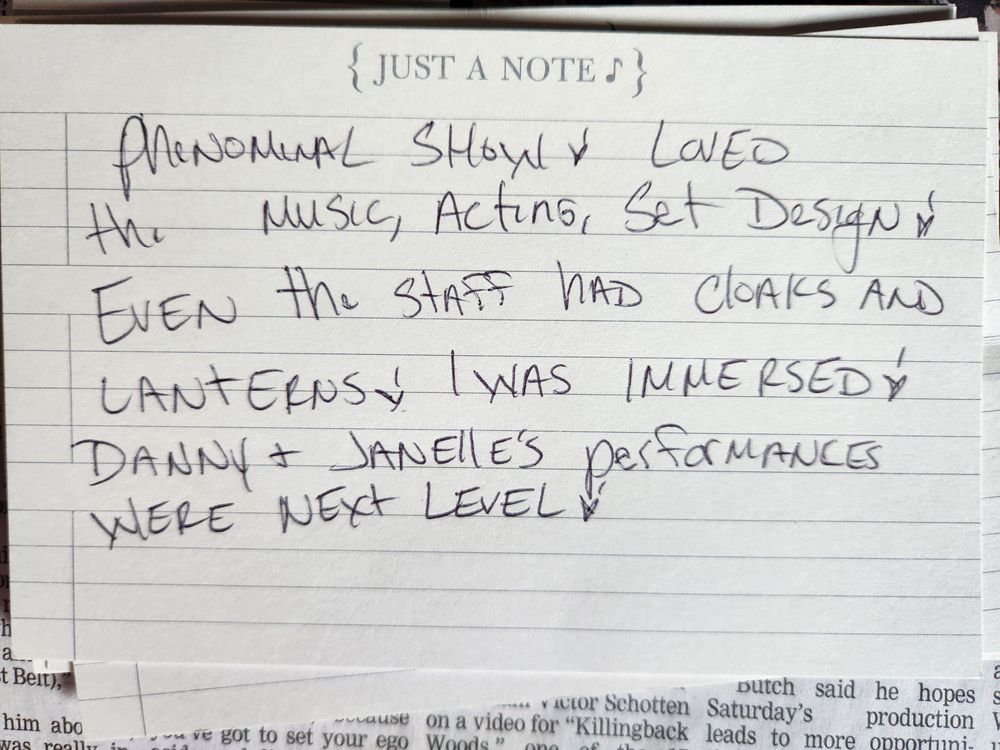 { JUST A NOTE ♪ }
PHENOMENAL SHOW! LOVED
the MUSIC, ACTING, Set DESIGN!
EVEN the STAFF hAD CLOAKS AND
LANTERNS! I WAS IMMERSED!
DANNY + JANELLE'S performANCES
WERE NEXT LEVEL!
t Belt),"
him abo
was really
you've got to set your ego
because on a video for "Killingback
Woods," one of the
Victor Schotten
Butch said he hopes
Saturday's production
leads to more opportuni-